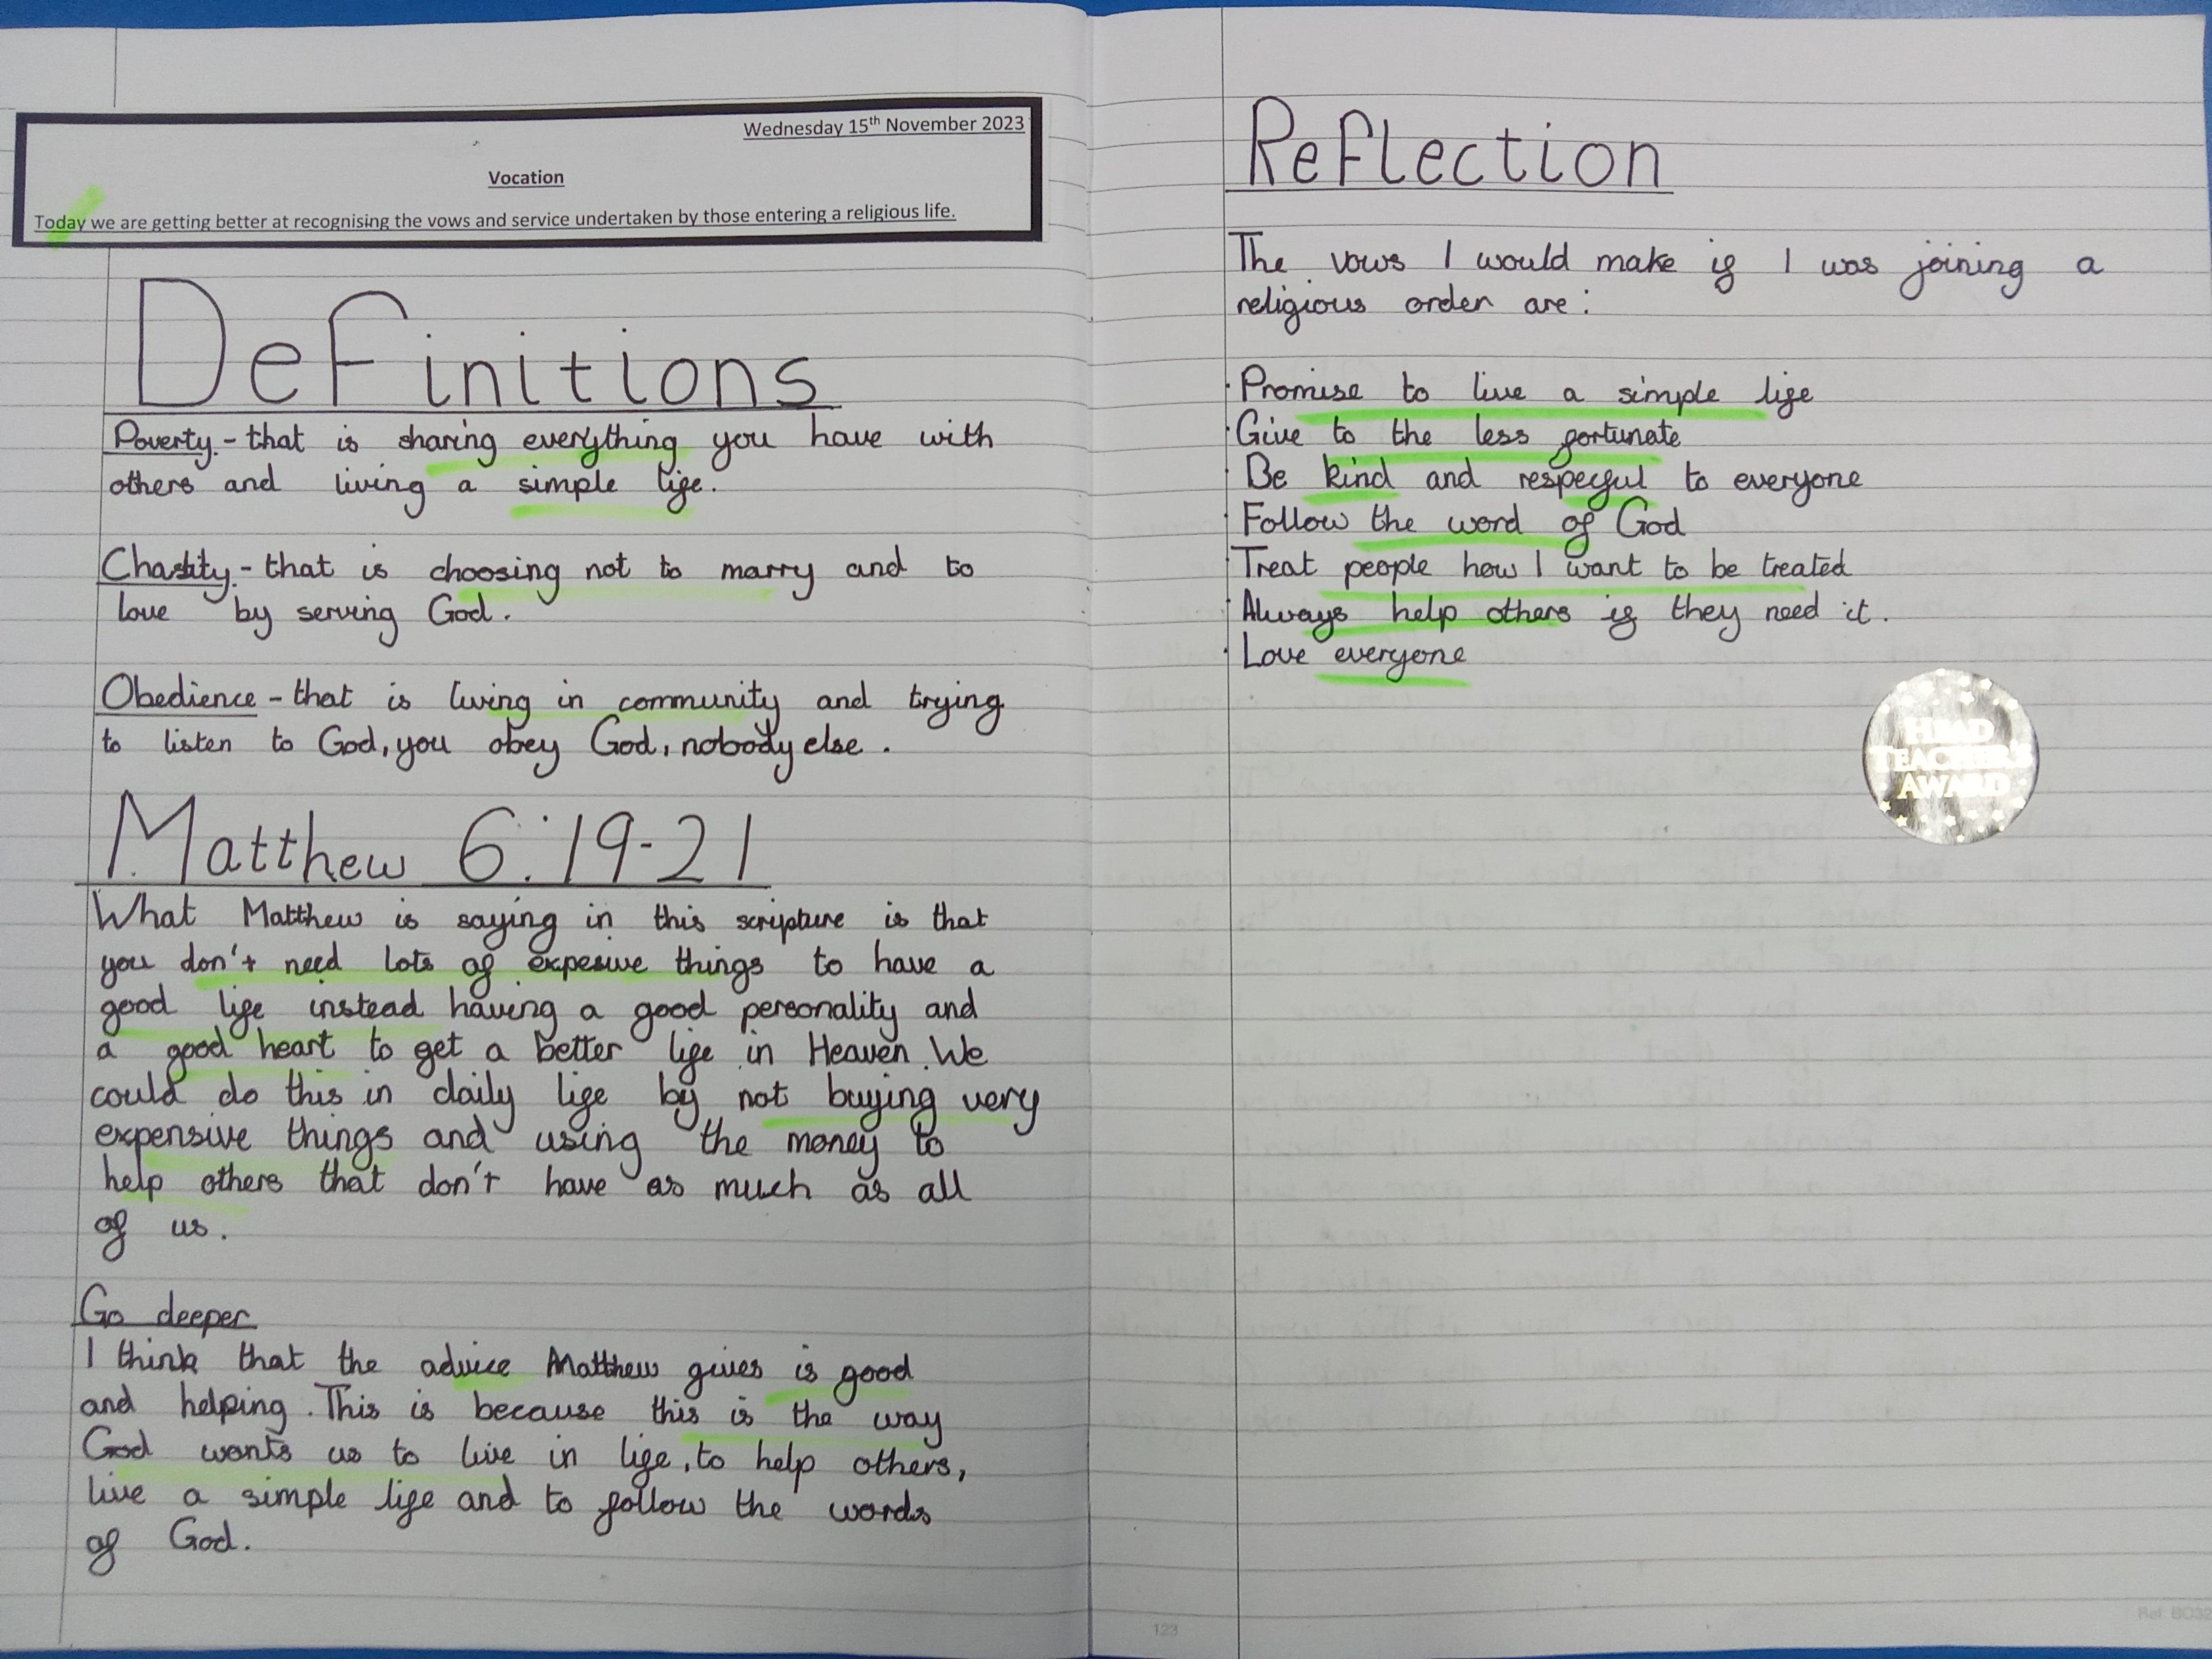 Wednesday 15th November 2023
Vocation
Today we are getting better at recognising the vows and service undertaken by those entering a religious life.
Definitions
Poverty - that is sharing everything you have with
others and living a simple life.
Chastity - that is choosing not to marry and to
love by serving God.
Obedience - that is living in community and trying
to listen to God, you obey God, nobody else.
Matthew 6:19-21
What Matthew is saying in this scripture is that
you don't need lots of expesive things to have a
good life instead having a good personality and
a good heart to get a better life in Heaven. We
could do this in daily life by not buying very
expensive things and using the money to
help others that don't have as much as all
of us.
Go deeper
I think that the advice Matthew gives is good
and helping. This is because this is the way
God wants us to live in life, to help others,
live a simple life and to follow the words
of God.
Reflection
The vows I would make if I was joining a
religious order are:
· Promise to live a simple life
· Give to the less fortunate
· Be kind and respecful to everyone
· Follow the word of God
· Treat people how I want to be treated
· Always help others if they need it.
· Love everyone
HEAD
TEACHERS
AWARD
123